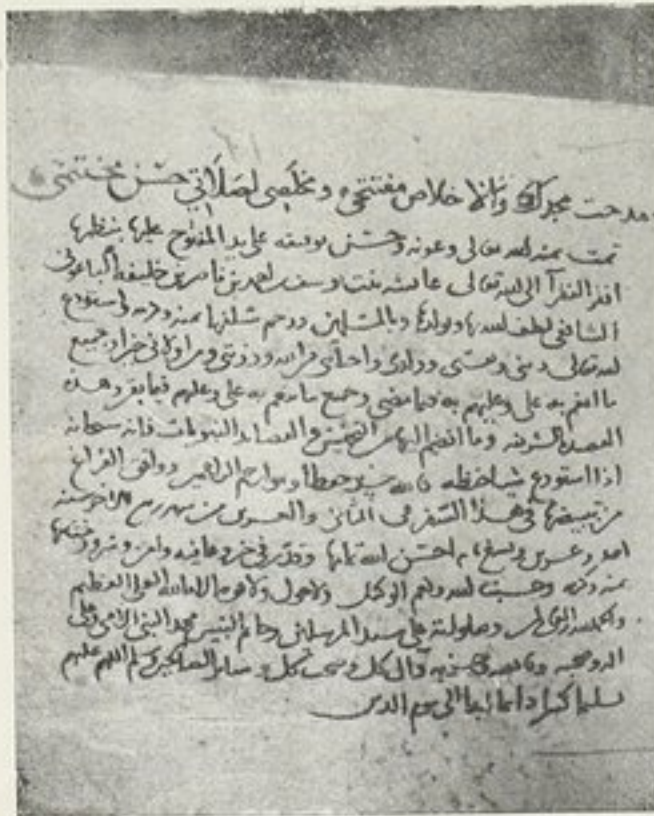 مدحت مجدك والاخلاص مفتتحي وتخلصي لصلاتي حسن مختتمي
تمت بمنه لله تعالى وعونه وحسن توفيقه على يد المفتوح عليها بنظمها
افقر الفقرآ الى لله تعالى عائشه بنت يوسف بن احمد بن ناصر بن خليفه الباعوني
الشافعي لطف لله بها وبوالديها وبالمسلمين ورحم سلفها بمنه وكرمه استودع
لله تعالى ديني ونفسي ووالدي واحبائي وذريتي وجميع
ما انعم به علي وعليهم به فيما مضى وجميع ما ينعم به علي وعليهم فيما بقي وهذه
القصيده الشريفه وما انضم اليها من والقصايد النبويات فانه سبحانه
اذا استودع شيا حفظه فالله خير حفظا وهو ارحم الراحمين ووافق الفراغ
من تبييضها في هذا السفر في الثاني والعشرين من شهر ربيع الاخر سنه
احدى وعشرين وتسعمايه احسن لله وقدر في خير وعافيه وامن
بمنه وكرمه وحسبنا لله ونعم الوكيل ولا حول ولا قوة الا بالله العلي العظيم
والحمد لله وصلواته على سيد المرسلين وخاتم النبيين محمد النبي الامي وعلى
اله وصحبه وتابعيه وآل كل وصحب كل وساير الصالحين وسلم اللهم عليهم
تسليما كثيرا دائما ابدا الى يوم الدين